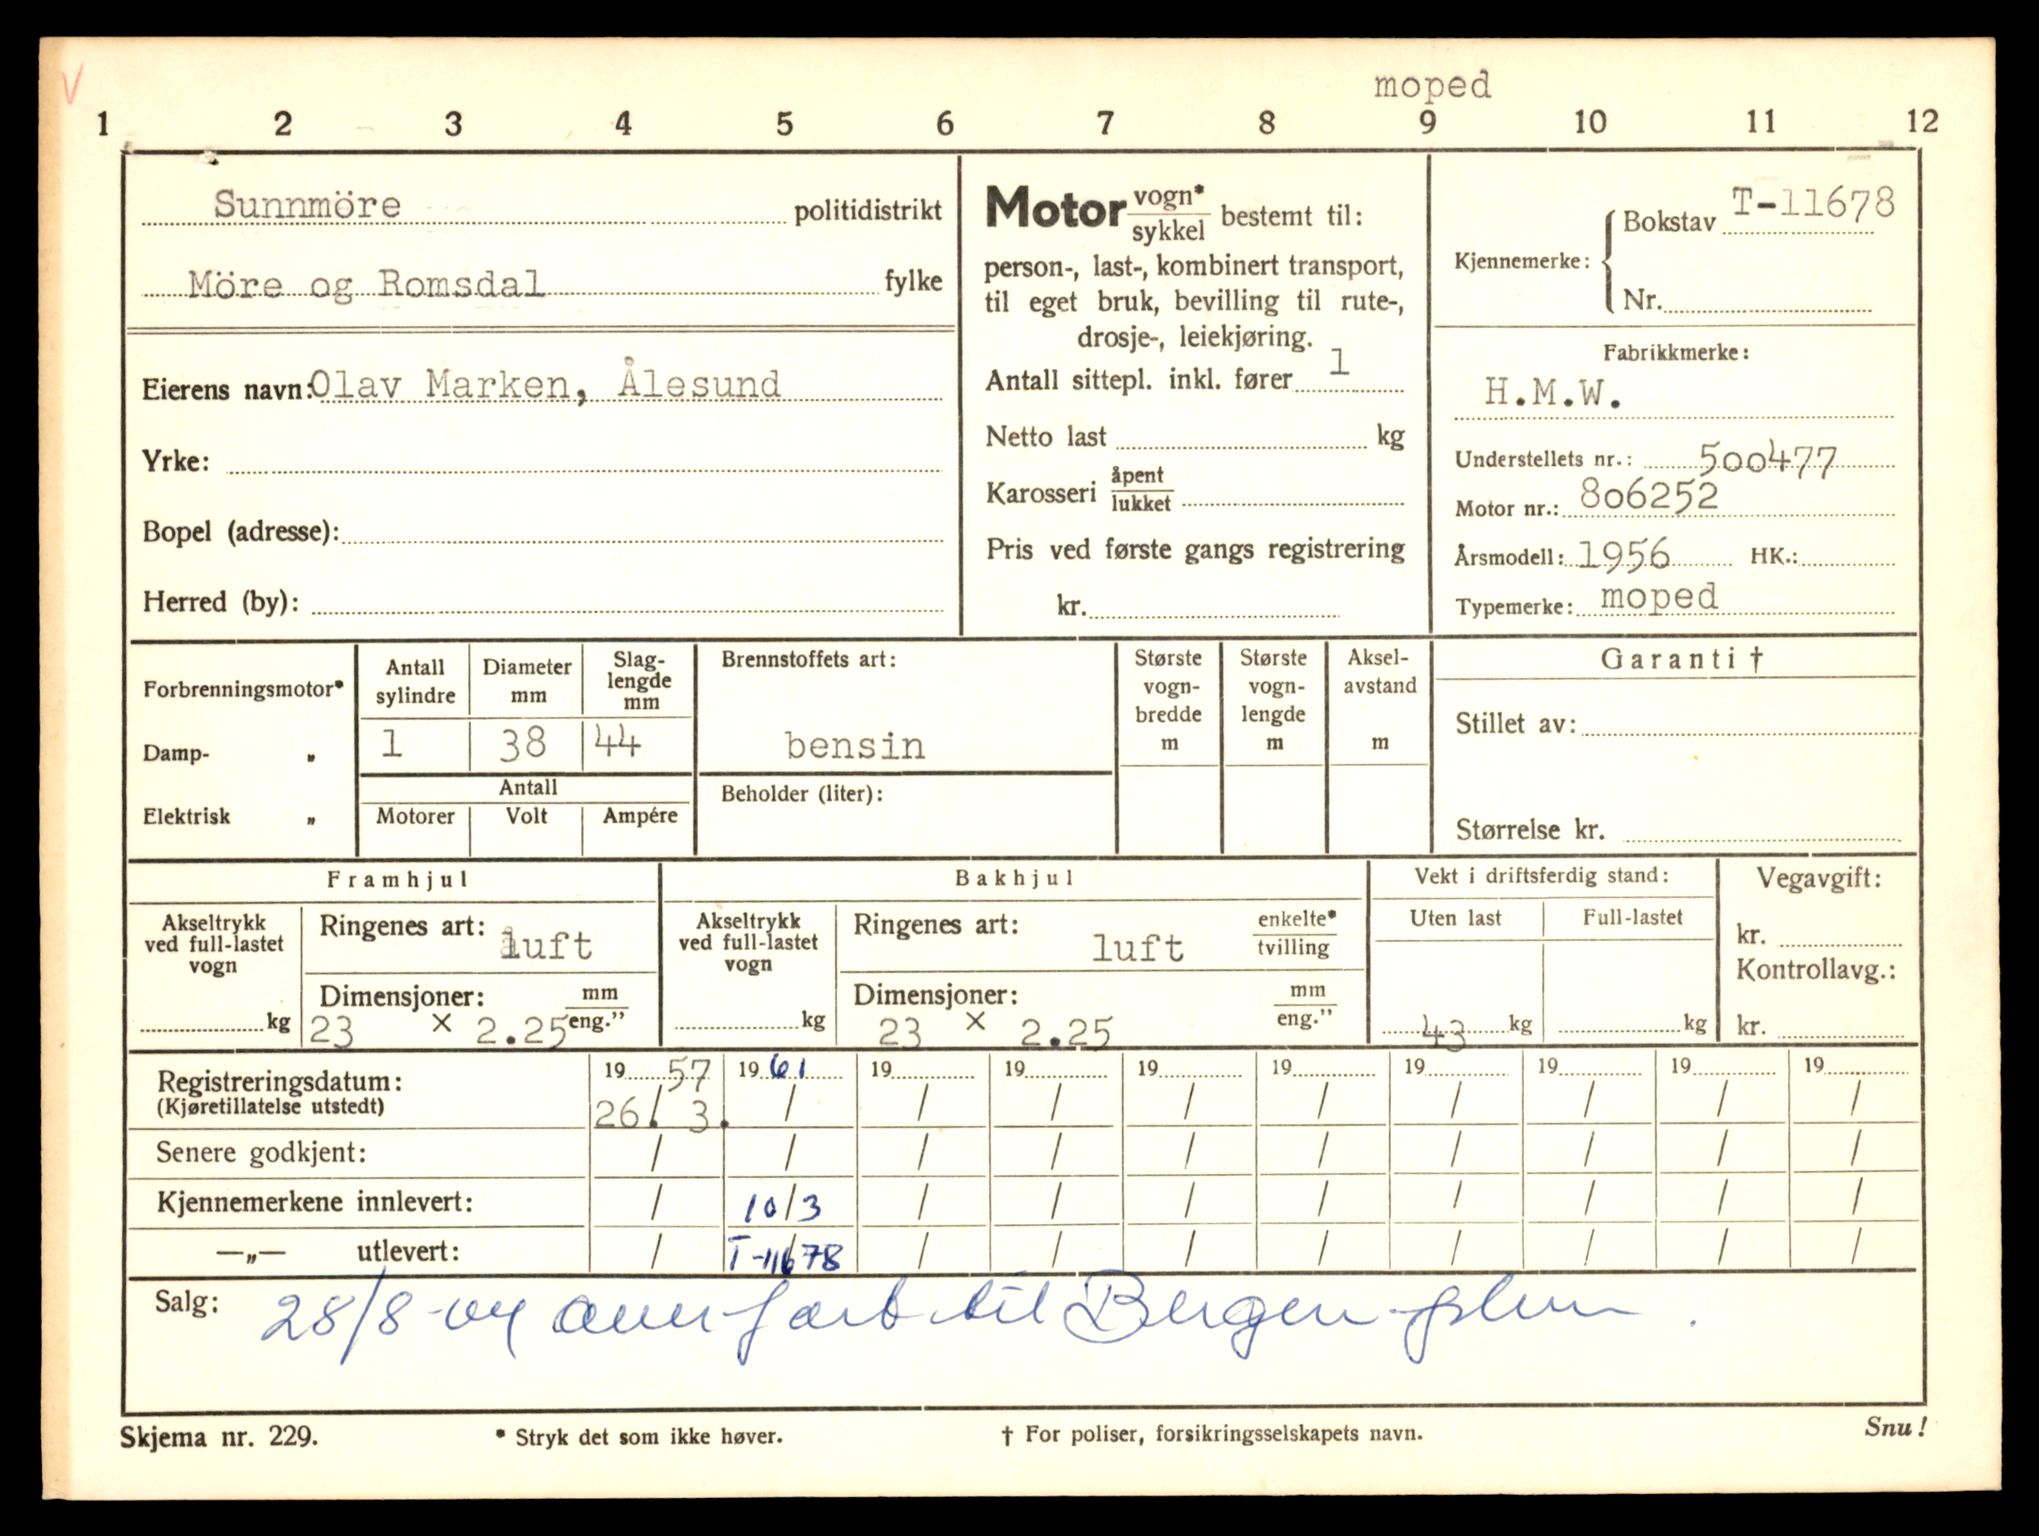 moped
1 2 3 4 5 6 7 8 9 10 11 12
Sunnmöre politidistrikt
Möre og Romsdal fylke
Eierens navn: Olav Marken, Ålesund
Yrke:
Bopel (adresse):
Herred (by):
Motor vogn* / sykkel bestemt til:
person-, last-, kombinert transport,
til eget bruk, bevilling til rute-,
drosje-, leiekjøring.
Antall sittepl. inkl. fører 1
Netto last kg
Karosseri åpent / lukket
Pris ved første gangs registrering
kr.
Kjennemerke: { Bokstav T-11678
Nr.
Fabrikkmerke:
H.M.W.
Understellets nr.: 500477
Motor nr.: 806252
Årsmodell: 1956 HK.:
Typemerke: moped
Forbrenningsmotor*
Damp- „
Elektrisk „
Antall sylindre
Diameter mm
Slag-lengde mm
1 38 44
Antall
Motorer Volt Ampére
Brennstoffets art:
bensin
Beholder (liter):
Største vogn-bredde m
Største vogn-lengde m
Aksel-avstand m
Garanti †
Stillet av:
Størrelse kr.
Framhjul
Akseltrykk ved full-lastet vogn
kg
Ringenes art: luft
Dimensjoner: mm / eng.”
23 × 2.25
Bakhjul
Akseltrykk ved full-lastet vogn
kg
Ringenes art: luft enkelte* / tvilling
Dimensjoner: mm / eng.”
23 × 2.25
Vekt i driftsferdig stand:
Uten last Full-lastet
43 kg kg
Vegavgift:
kr.
Kontrollavg.:
kr.
Registreringsdatum: 19 57 19 61 19 19 19 19 19 19 19 19
(Kjøretillatelse utstedt) 26. 3. / / / / / / / / /
Senere godkjent: / / / / / / / / / /
Kjennemerkene innlevert: / 10/3 / / / / / / / /
—„— utlevert: / T-11678 / / / / / / / /
Salg: 28/8 til Bergen
Skjema nr. 229. * Stryk det som ikke høver. † For poliser, forsikringsselskapets navn. Snu!